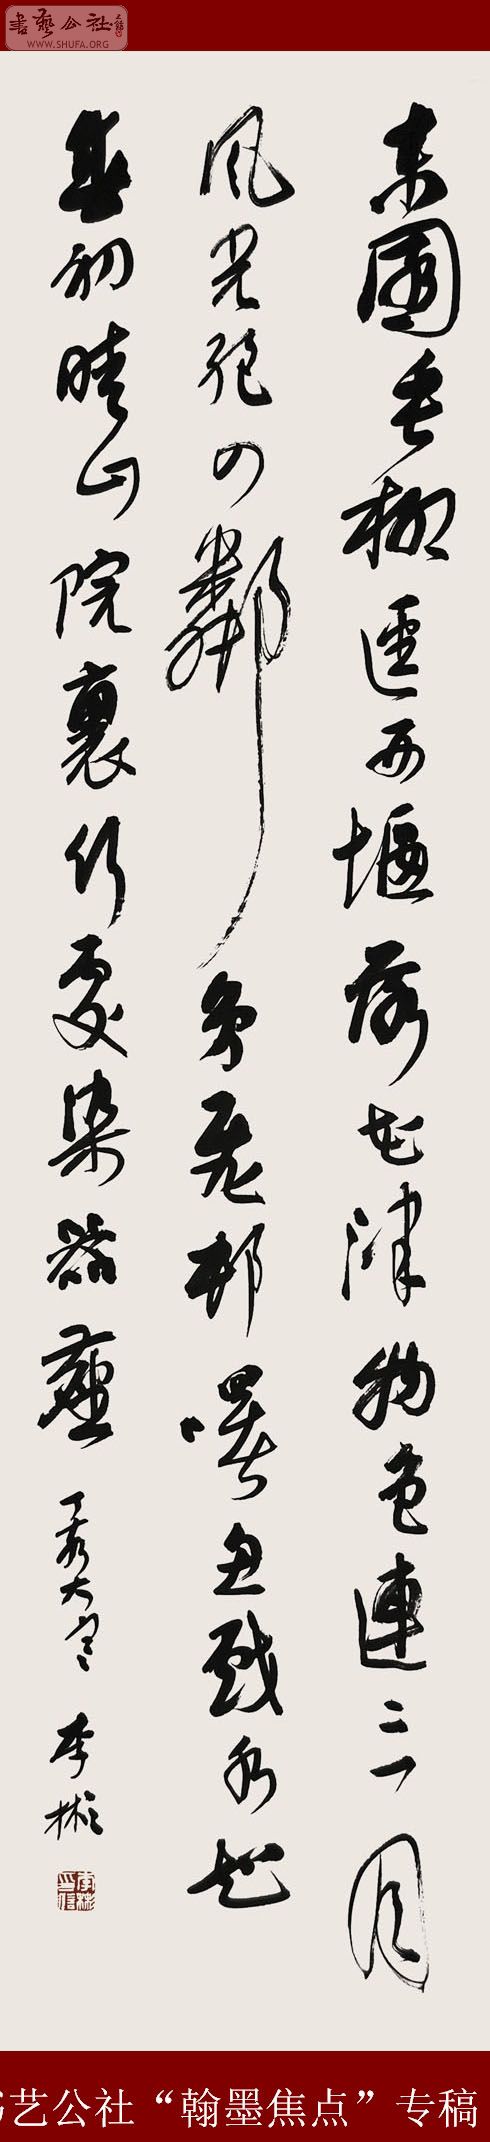 書藝公社
WWW.SHUFA.ORG
東園垂柳逕西堰落花津物色連三月
風光絕四鄰鳥飛村曙魚戲水知
春初晴山院裏何處染囂塵
丁酉大寒 李彬
艺公社“翰墨焦点”专稿